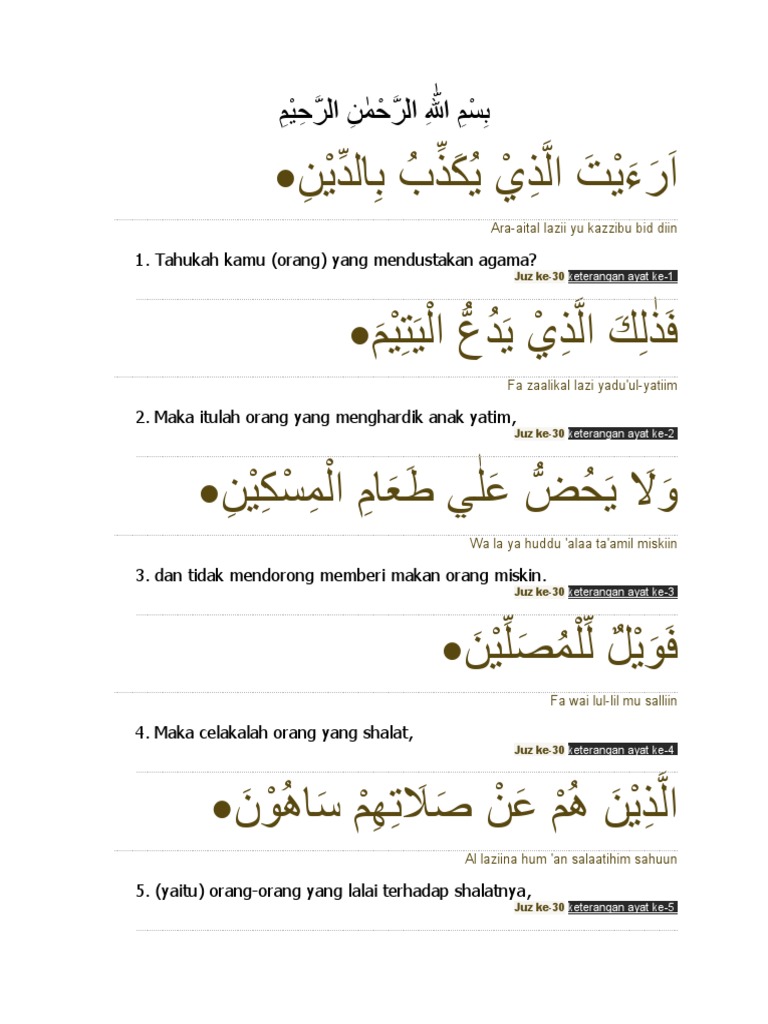 بِسْمِ اللّٰهِ الرَّحْمٰنِ الرَّحِيْمِ
اَرَءَيْتَ الَّذِيْ يُكَذِّبُ بِالدِّيْنِ●
Ara-aital lazii yu kazzibu bid diin
1. Tahukah kamu (orang) yang mendustakan agama?
Juz ke-30 keterangan ayat ke-1
فَذٰلِكَ الَّذِيْ يَدُعُّ الْيَتِيْمَ●
Fa zaalikal lazi yadu'ul-yatiim
2. Maka itulah orang yang menghardik anak yatim,
Juz ke-30 keterangan ayat ke-2
وَلَا يَحُضُّ عَلٰي طَعَامِ الْمِسْكِيْنِ●
Wa la ya huddu 'alaa ta'amil miskiin
3. dan tidak mendorong memberi makan orang miskin.
Juz ke-30 keterangan ayat ke-3
فَوَيْلٌ لِّلْمُصَلِّيْنَ●
Fa wai lul-lil mu salliin
4. Maka celakalah orang yang shalat,
Juz ke-30 keterangan ayat ke-4
الَّذِيْنَ هُمْ عَنْ صَلَاتِهِمْ سَاهُوْنَ●
Al laziina hum 'an salaatihim sahuun
5. (yaitu) orang-orang yang lalai terhadap shalatnya,
Juz ke-30 keterangan ayat ke-5